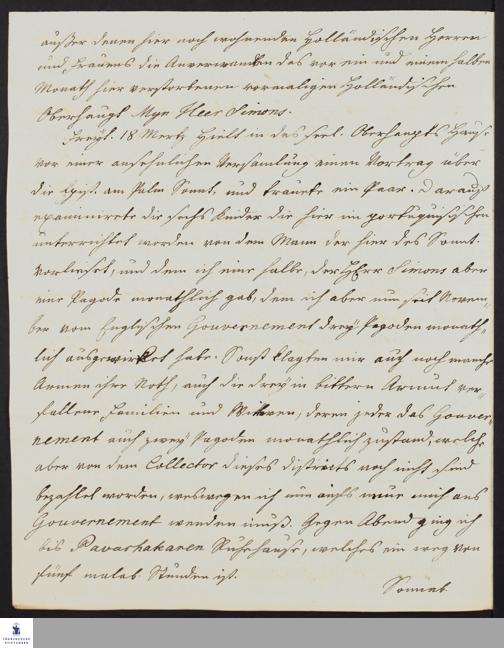 außer denen hier noch wohnenden Holländischen Herren
und Frauens die Anverwandten des vor ein und einem halben
Monath hier verstorbenen vormaligen Holländischen
Oberhaupt Myn Heer Simons.
Freyt. 18 Mertz hielt in des seel. Oberhaupts Hause
vor einer ansehnlichen Versamlung einen Vortrag über
die Epist. am Palm Sonnt. und traute ein Paar. Darauf
examinirete die sechs Kinder die hier im portugisischen
unterrichtet werden von dem Mann der hier des Sonnt.
vorlieset, und dem ich eine halbe, der HErr Simons aber
eine Pagode monathlich gab, dem ich aber nun seit Novem-
ber vom Englischen Gouvernement drey Pagoden monath-
lich ausgewirket habe. Sonst klagten mir auch noch manche
Armen ihre Noth, auch die drey in bittern Armut ver-
fallene Familien und Witwen, deren jeder das Gouver-
nement auch zwey Pagoden monathlich zustand, welche
aber von dem Collector dieses districts noch nicht sind
bezahlet worden, weswegen ich nun aufs neue mich ans
Gouvernement wenden muß. Gegen Abend ging ich
bis Ruhehause, welches ein weg von
fünf malab. Stunden ist.
Sonnab.
FRANCKESCHE
STIFTUNGEN